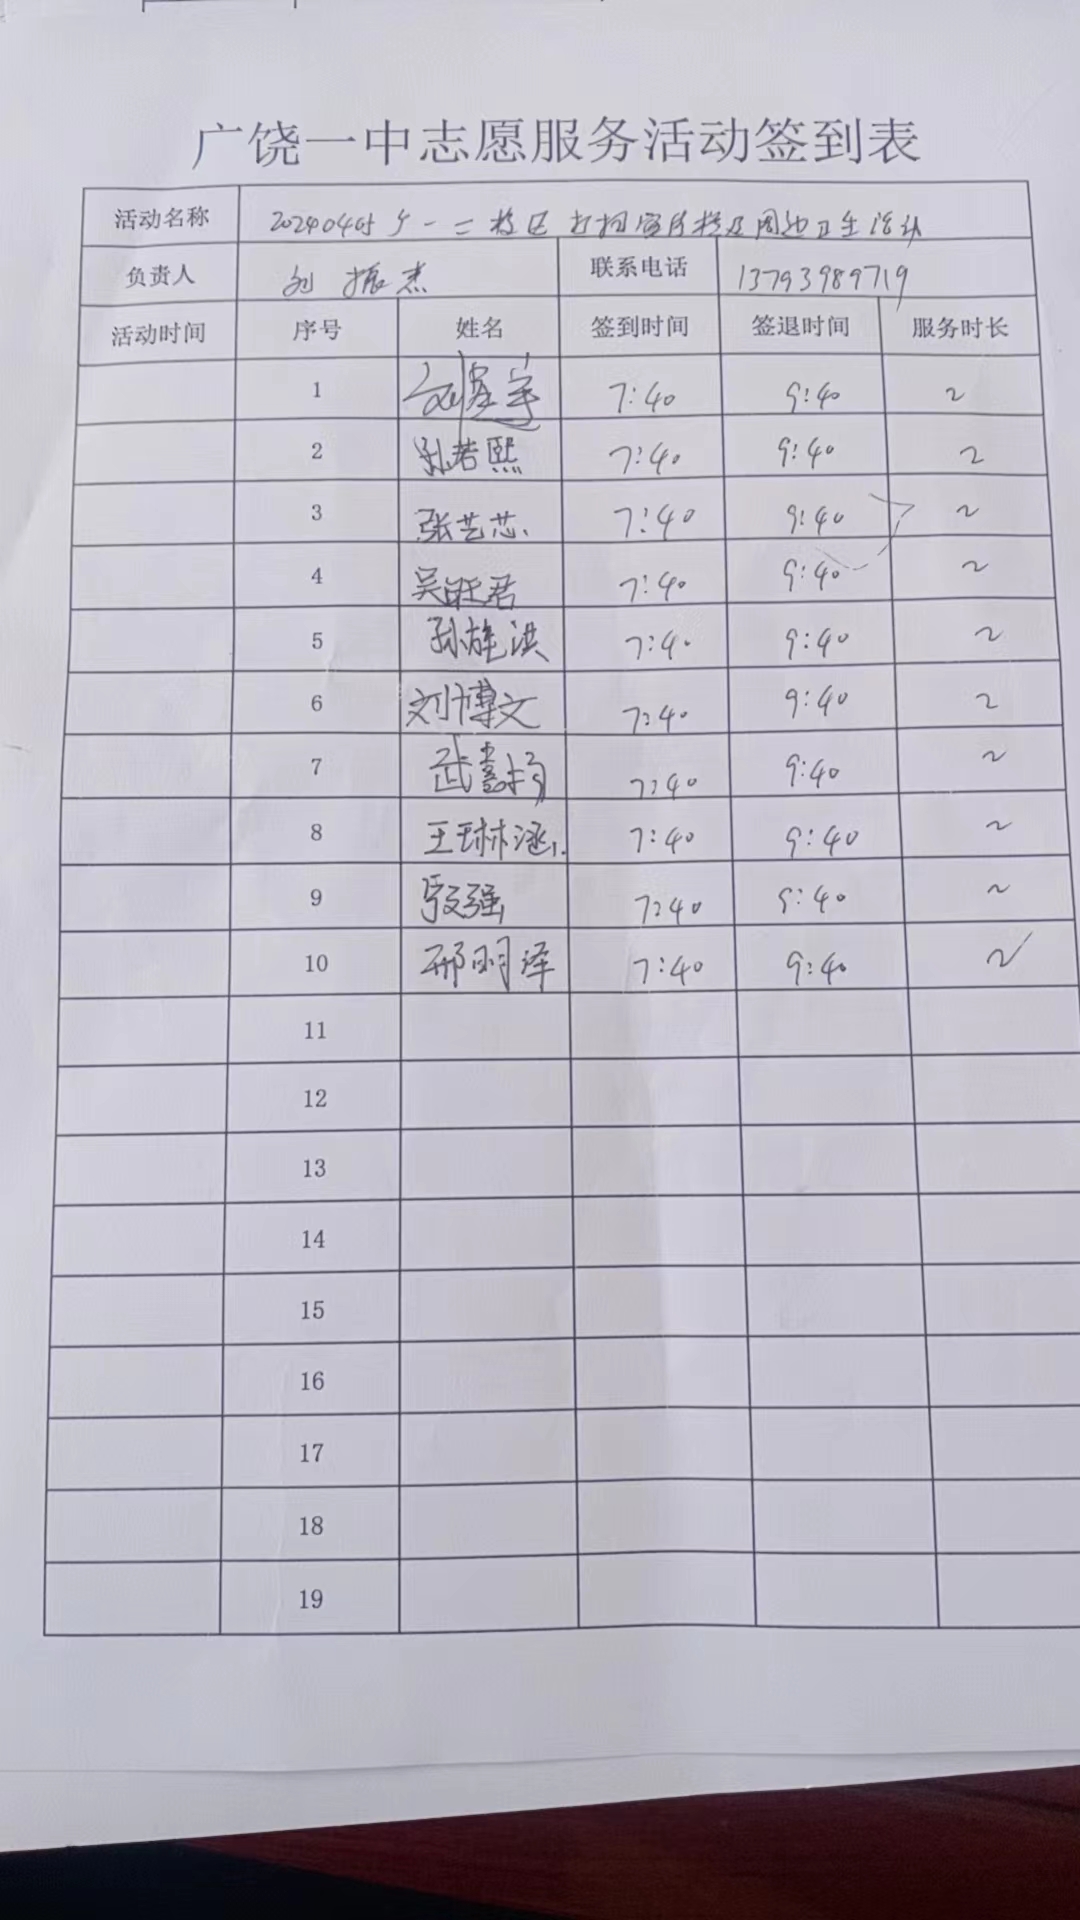 广饶一中志愿服务活动签到表
活动名称 20240405 广一二校区打扫宣传栏及周边卫生活动
负责人 刘振杰 联系电话 13793989719
活动时间 序号 姓名 签到时间 签退时间 服务时长
1 7:40 9:40 2
2 孙若熙 7:40 9:40 2
3 张艺芯 7:40 9:40 2
4 吴 君 7:40 9:40 2
5 孙 洪 7:40 9:40 2
6 刘博文 7:40 9:40 2
7 武鑫扬 7:40 9:40 2
8 王琳涵 7:40 9:40 2
9 强 7:40 9:40 2
10 邢明泽 7:40 9:40 2
11
12
13
14
15
16
17
18
19